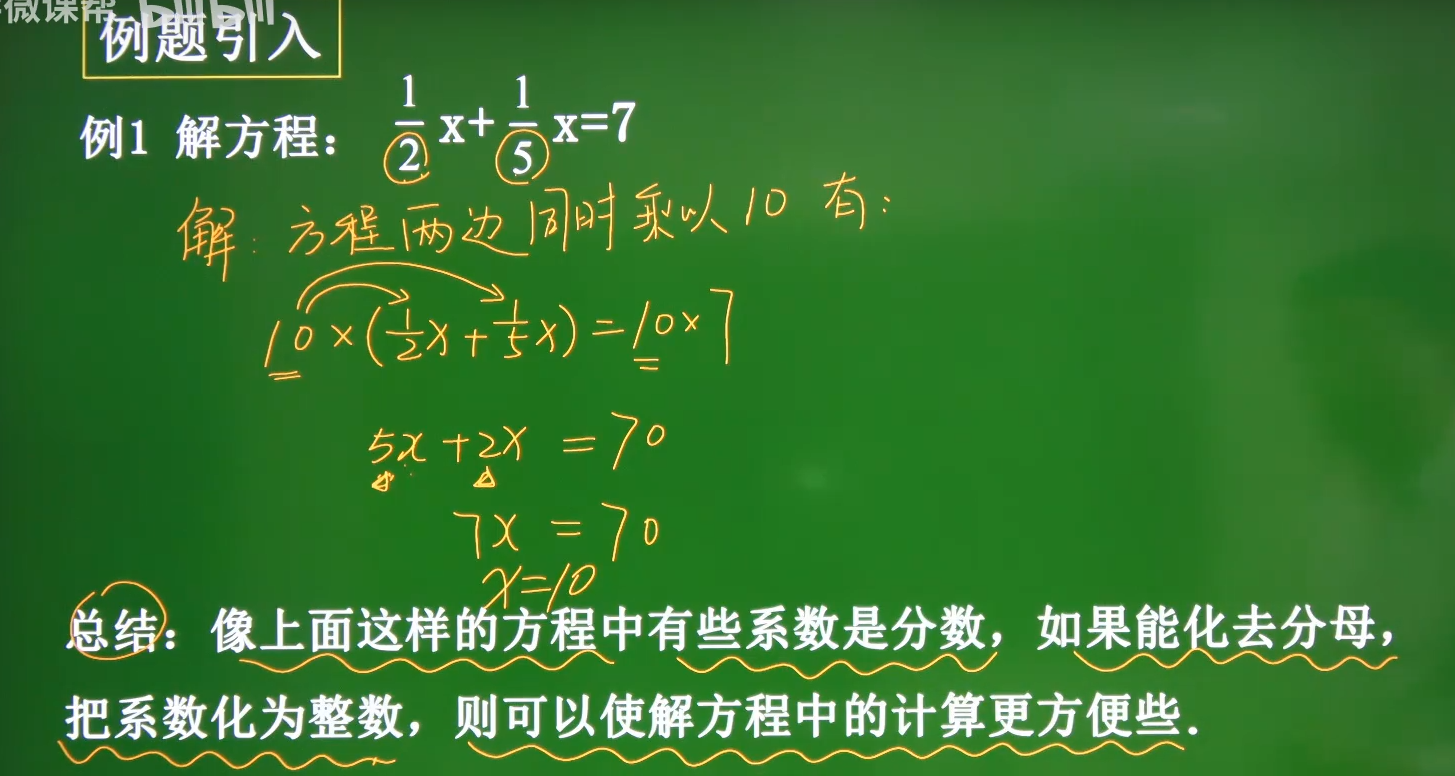 微课帮 bilibili
例题引入
例1 解方程： 1/2 x+ 1/5 x=7
解：方程两边同时乘以10 有：
10×(1/2 x+1/5 x)=10×7
5x+2x =70
7x =70
x=10
总结：像上面这样的方程中有些系数是分数，如果能化去分母，
把系数化为整数，则可以使解方程中的计算更方便些．